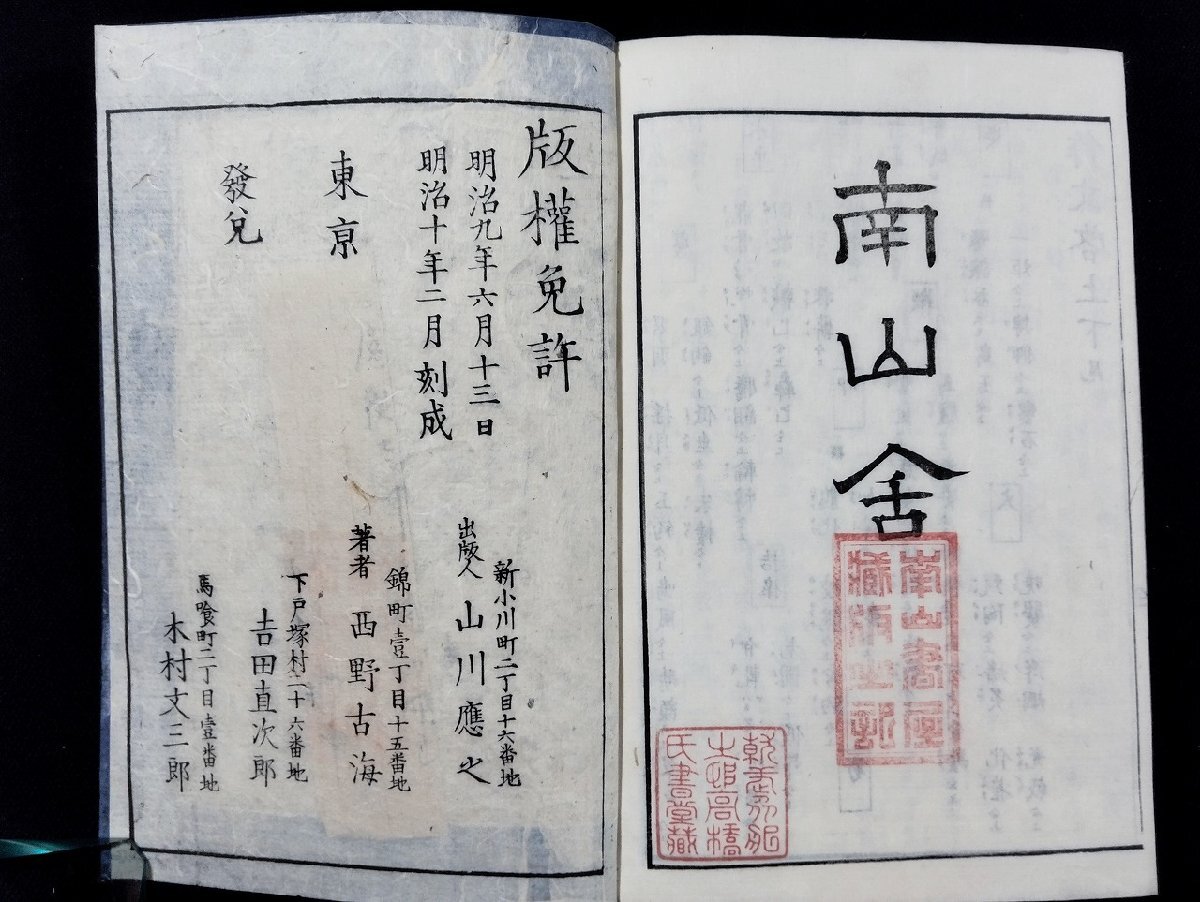 南山舍
南山書屋
藏版之記
氏書堂藏
版權免許
明治九年六月十三日
明治十年二月刻成
新小川町二丁目十六番地
出版人 山川應之
錦町壹丁目十五番地
著者 西野古海
東京
下戸塚村二十六番地
吉田直次郎
發兌
馬喰町二丁目壹番地
木村文三郎